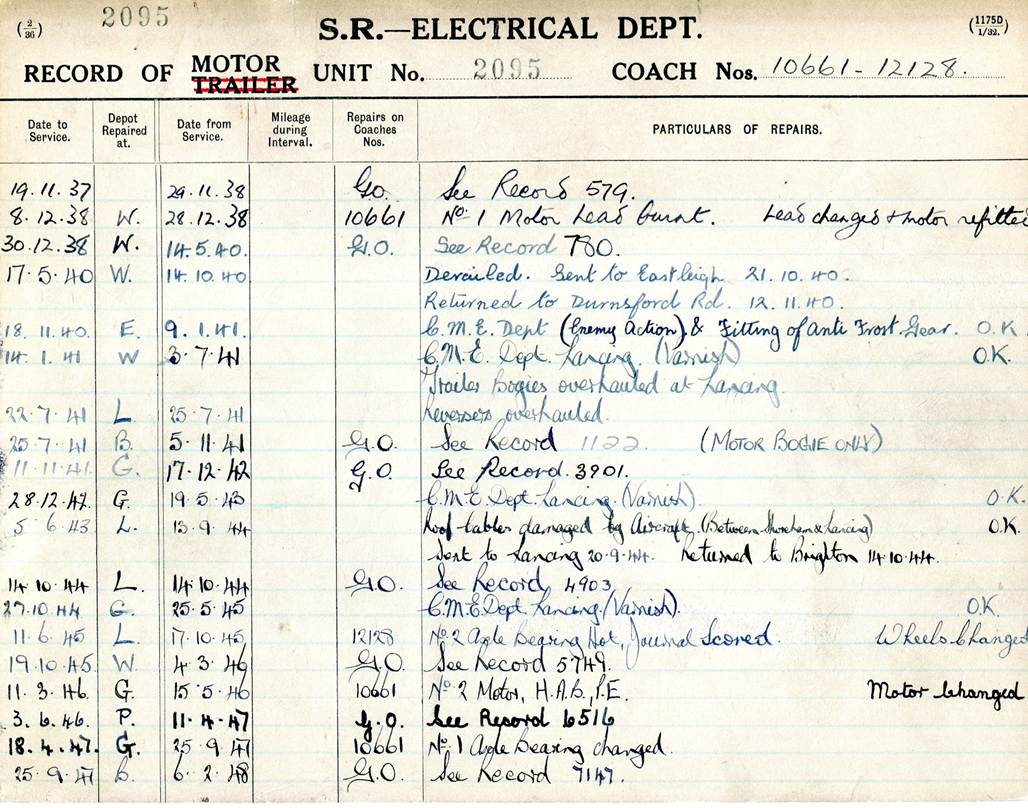 (2/36) 2095 S.R.—ELECTRICAL DEPT. (1175D 1/32.)
RECORD OF MOTOR TRAILER UNIT No. 2095 COACH Nos. 10661-12128.
Date to Service. Depot Repaired at. Date from Service. Mileage during Interval. Repairs on Coaches Nos. PARTICULARS OF REPAIRS.
19.11.37 29.11.38 G.O. See Record 579.
8.12.38 W. 28.12.38 10661 No. 1 Motor Lead burnt. Lead changed & motor refitted
30.12.38 W. 14.5.40. G.O. See Record 780.
17.5.40 W. 14.10.40. Derailed. Sent to Eastleigh 21.10.40.
Returned to Durnsford Rd. 12.11.40.
18.11.40. E. 9.1.41. C.M.E. Dept (Enemy Action) & Fitting of Anti Frost Gear. O.K
14.1.41 W 3.7.41 C.M.E. Dept. Lancing. (Varnish) O.K.
Trailer Bogies overhauled at Lancing.
22.7.41 L. 25.7.41 Reversers overhauled.
25.7.41 B. 5.11.41 G.O. See Record 1122. (MOTOR BOGIE ONLY)
11.11.41. G. 17.12.42 G.O. See Record 3901.
28.12.42. G. 19.5.43 C.M.E. Dept. Lancing. (Varnish). O.K.
5.6.43 L. 13.9.44 Roof cables damaged by Aircraft. (Between Shoreham & Lancing) O.K.
Sent to Lancing 20-9-44. Returned to Brighton 14.10.44.
14.10.44 L. 14.10.44 G.O. See Record 4903.
27.10.44 G. 25.5.45 C.M.E. Dept. Lancing. (Varnish). O.K.
11.6.45 L. 17.10.45 12128 No. 2 Axle Bearing Hot, Journal Scored. Wheels Changed
19.10.45. W. 4.3.46 G.O. See Record 5749.
11.3.46. G. 15.5.46 10661 No. 2 Motor, H.A.B., P.E. Motor Changed
3.6.46. P. 11.4.47 G.O. See Record 6516
18.4.47. G. 25.9.47 10661 No. 1 Axle Bearing changed.
25.9.47 B. 6.2.48 G.O. See Record 7147.